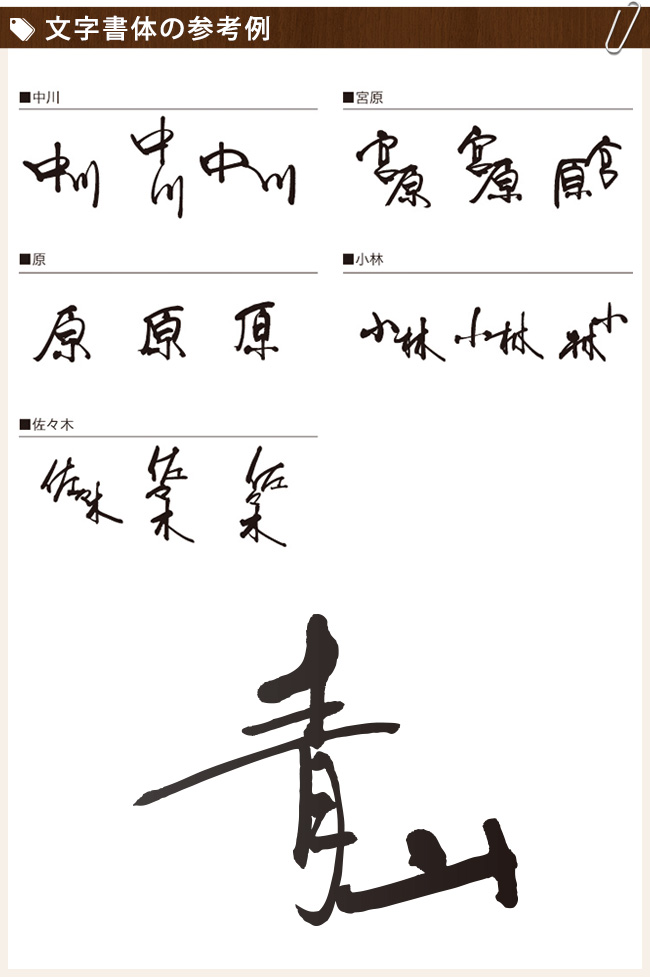 文字書体の参考例
■中川
中川 中川 中川
■宮原
宮原 宮原 宮原
■原
原 原 原
■小林
小林 小林 小林
■佐々木
佐々木 佐々木 佐々木
青山